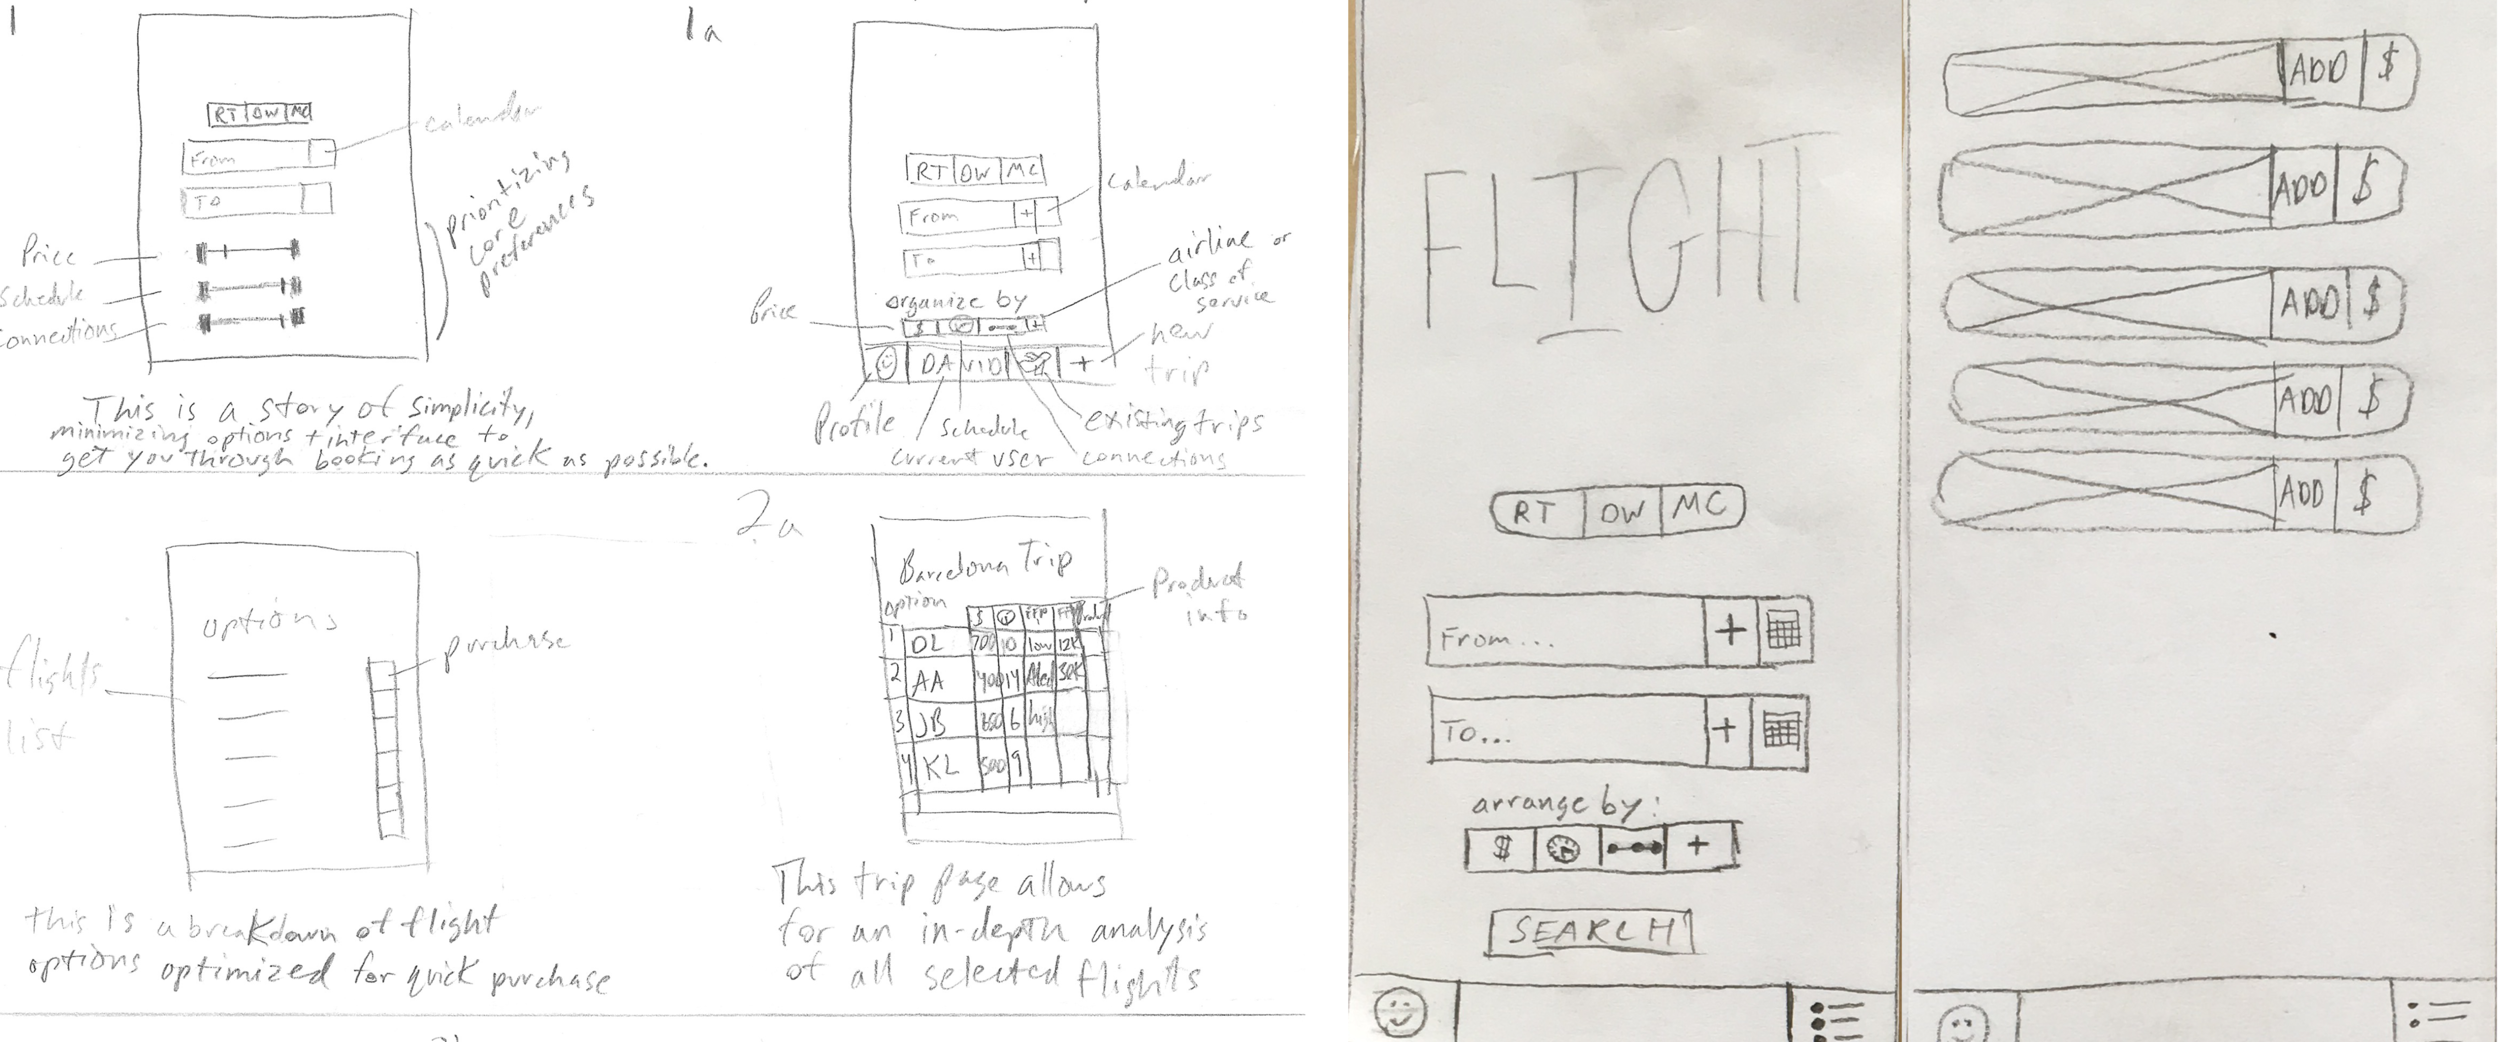 1
RT OW MC
calendar
From
To
prioritizing
core
preferences
Price
Schedule
Connections
This is a story of simplicity,
minimizing options + interface to
get you through booking as quick as possible.
1a
RT OW MC
calendar
From +
To +
airline or
class of
service
organize by
Price
$ +
new
trip
DAVID +
Profile
Schedule
existing trips
current user
connections
options
purchase
flights
list
this is a breakdown of flight
options optimized for quick purchase
2a
Barcelona Trip
Product
info
option
$
1 DL 700 10 low 12K
2 AA 14
3 JB 6 high
4 KL 500 9
This trip page allows
for an in-depth analysis
of all selected flights
FLIGHT
RT OW MC
From... +
To... +
arrange by:
$ +
SEARCH
ADD $
ADD $
ADD $
ADD $
ADD $